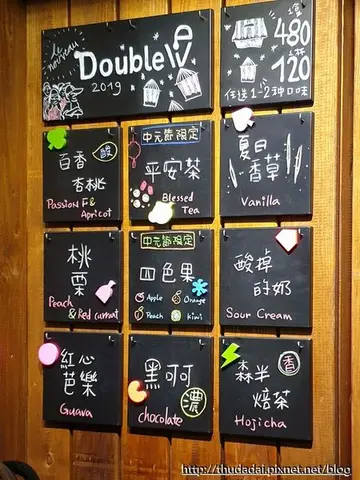 le nouveau
Double V
2019
壺 480
杯 120
任選1~2種口味
百香
杏桃
酸
Passion F &
Apricot
中元節限定
平安茶
Blessed
Tea
夏日
香草
Vanilla
桃
栗
Peach
& Red currant
中元節限定
四色果
Apple
Orange
Peach
Kiwi
酸掉
的奶
Sour Cream
紅心
芭樂
Guava
黑呵呵
濃
chocolate
森半
焙茶
香
Hojicha
http://thudadai.pixnet.net/blog